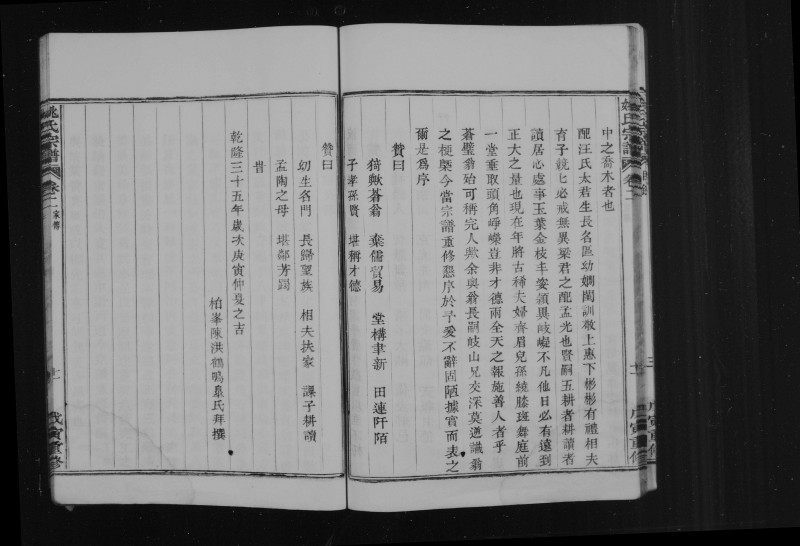 中之喬木者也
配汪氏太君生長名區幼嫻閨訓敬上惠下彬彬有禮相夫
育子兢匕必戒無異梁君之配孟光也賢嗣五耕者耕讀者
讀居心處事玉葉金枝丰姿穎異岐嶷不凡他日必有遠到
正大之量也現在年將古稀夫婦齊眉兒孫繞膝斑舞庭前
一堂垂取頭角崢嶸豈非才德兩全天之報施善人者乎
蒼璧翁始可稱完人歟余與翁長嗣岐山兄交深莫逆識翁
之梗槩今當宗譜重修懇序於予爰不辭固陋據實而表之
爾是爲序
贊曰
猗歟蒼翁 棄儒貿易 堂構聿新 田連阡陌
子孝孫賢 堪稱才德
贊曰
幼生名門 長歸望族 相夫扶家 課子耕讀
孟陶之母 堪鄰芳躅
旹
乾隆三十五年歲次庚寅仲夏之吉
柏峯陳洪鶴鳴臯氏拜撰
姚氏宗譜 卷二 家傳
戊寅重修